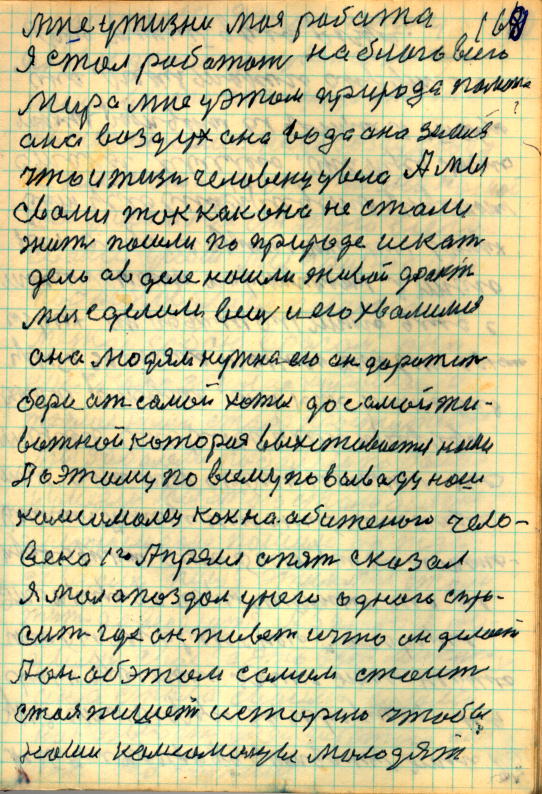 мне у жизни моя работа 168
Я стал работат на благо всего
мира мне у этом природа
она воздух она вода она земля
что и жизн человеку увела А мы
с вами ток как она не стали
жит пошли по природе искат
дело а в деле нашли живой факт
мы сделали вещ и его хвалимся
она людям нужна его он
бери ат самой хаты до самой жи-
вотной которая выхитывается нами
Поэтому по всему по вываду наш
камсомолец как на обиженого чело-
века 1го Апреля опят сказал
Я мол опоздал у него одного спро-
сит где он живет и что он делает
А он об этом самом стоит
стоя пишет историю чтобы
наши камсомольцы молодёж